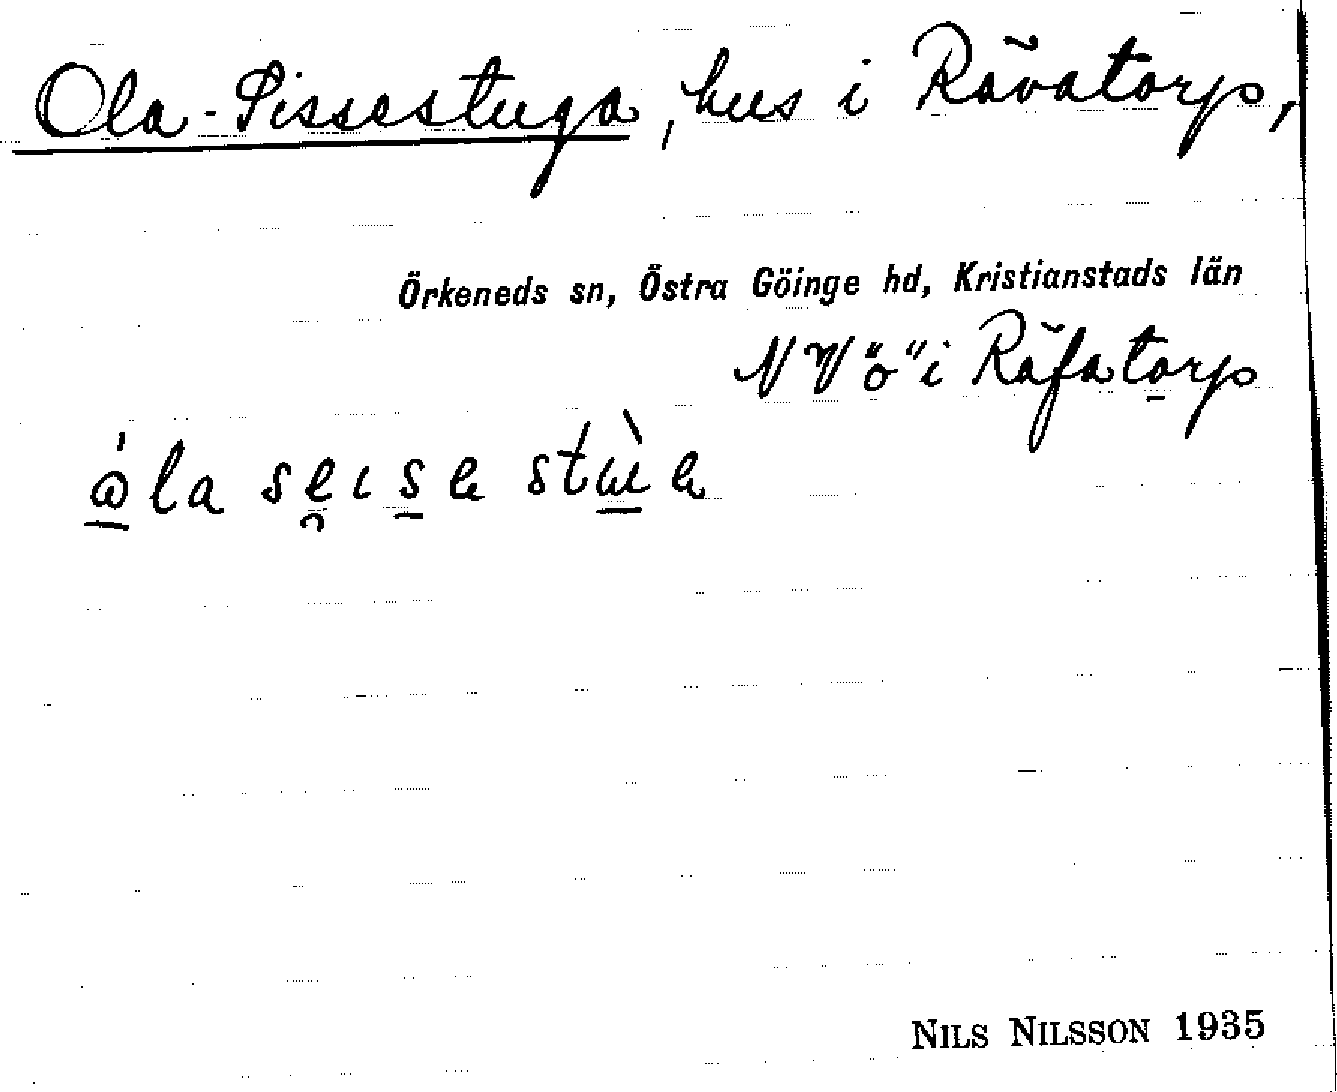 Ola-Sissestuga, hus i Rävatorp,
Örkeneds sn, Östra Göinge hd, Kristianstads län
NV "ö" i Räfatorp
NILS NILSSON 1935